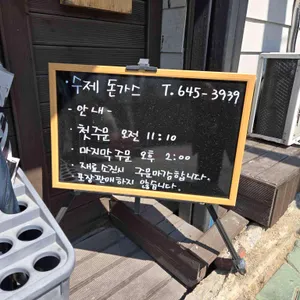 · 수제 돈가스 T. 645-3939
- 안내 -
· 첫주문 오전 11:10
· 마지막 주문 오후 2:00
· 재료소진시 주문마감합니다.
· 포장판매하지 않습니다.